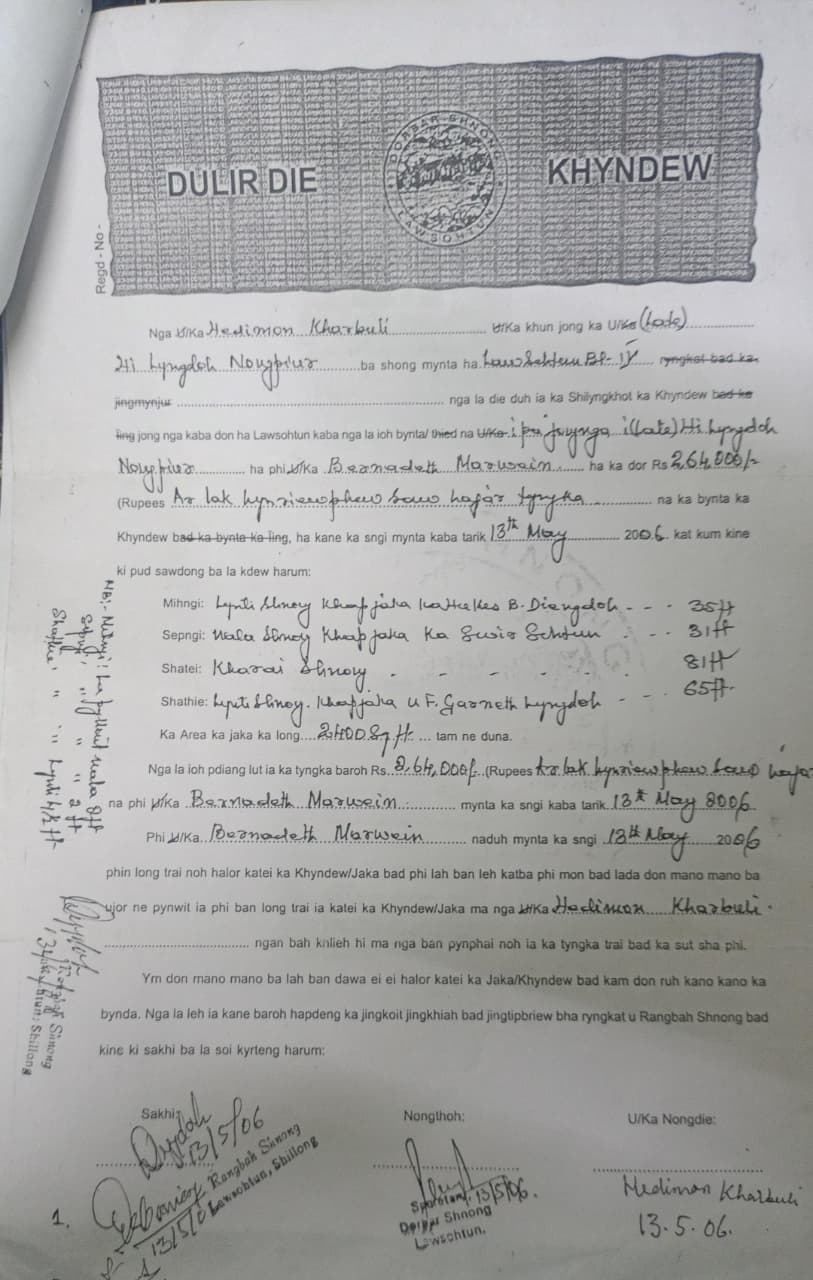 DULIR DIE KHYNDEW
DORBAR SHNONG
LAWSOHTUN
Regd - No -
Nga U/Ka Hedimon Kharbuli U/Ka khun jong ka U/Ka (Late)
Hi Lyngdoh Nongpiur ba shong mynta ha Lawsohtun BL-IV ryngkat bad ka
jingmynjur nga la die duh ia ka Shilyngkhot ka Khyndew bad ka
ïing jong nga kaba don ha Lawsohtun kaba nga la ioh bynta/ thied na U/Ka i (Late) Hi Lyngdoh
Nongpiur ha phi U/Ka Bernadeth Marwein ha ka dor Rs 2,64,000/-
(Rupees Ar lak hynriewphew saw hajar tyngka na ka bynta ka
Khyndew bad ka bynta ka ïing, ha kane ka sngi mynta kaba tarik 13th May 2006. kat kum kine
ki pud sawdong ba la kdew harum:
Mihngi: Lynti Shnong Khap jaka Ka Kes B. Diengdoh - - - 35ft
Sepngi: Wala Shnong Khap jaka Ka Swir Sohtun - - - 31ft
Shatei: Kharai Shnong - - - - - 81ft
Shathie: Lynti Shnong. Khap jaka U F. Garneth Lyngdoh - - - 65ft.
Ka Area ka jaka ka long 2400 Sq ft tam ne duna.
Nga la ioh pdiang lut ia ka tyngka baroh Rs. 2,64,000/- (Rupees Ar lak hynriewphew saw hajar
na phi U/Ka Bernadeth Marwein mynta ka sngi kaba tarik 13th May 2006
Phi U/Ka Bernadeth Marwein naduh mynta ka sngi 13th May 2006
phin long trai noh halor katei ka Khyndew/Jaka bad phi lah ban leh katba phi mon bad lada don mano mano ba
ujor ne pynwit ia phi ban long trai ia katei ka Khyndew/Jaka ma nga U/Ka Hedimon Kharbuli.
ngan bah knlieh hi ma nga ban pynphai noh ia ka tyngka trai bad ka sut sha phi.
Ym don mano mano ba lah ban dawa ei ei halor katei ka Jaka/Khyndew bad kam don ruh kano kano ka
bynda. Nga la leh ia kane baroh hapdeng ka jingkoit jingkhiah bad jingtipbriew bha ryngkat u Rangbah Shnong bad
kine ki sakhi ba la soi kyrteng harum:
Sakhi:
13/5/06
Rangbah Shnong
Lawsohtun, Shillong
1.
13/5/06
Nongthoh:
13/5/06.
Dorbar Shnong
Lawsohtun.
U/Ka Nongdie:
Hedimon Kharbuli
13.5.06.